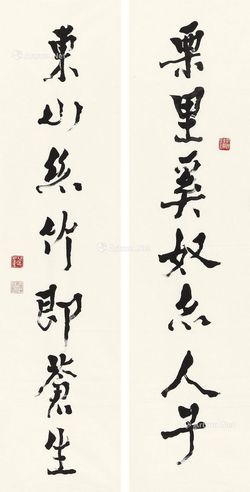 栗里奚奴亦人子
東山絲竹即蒼生